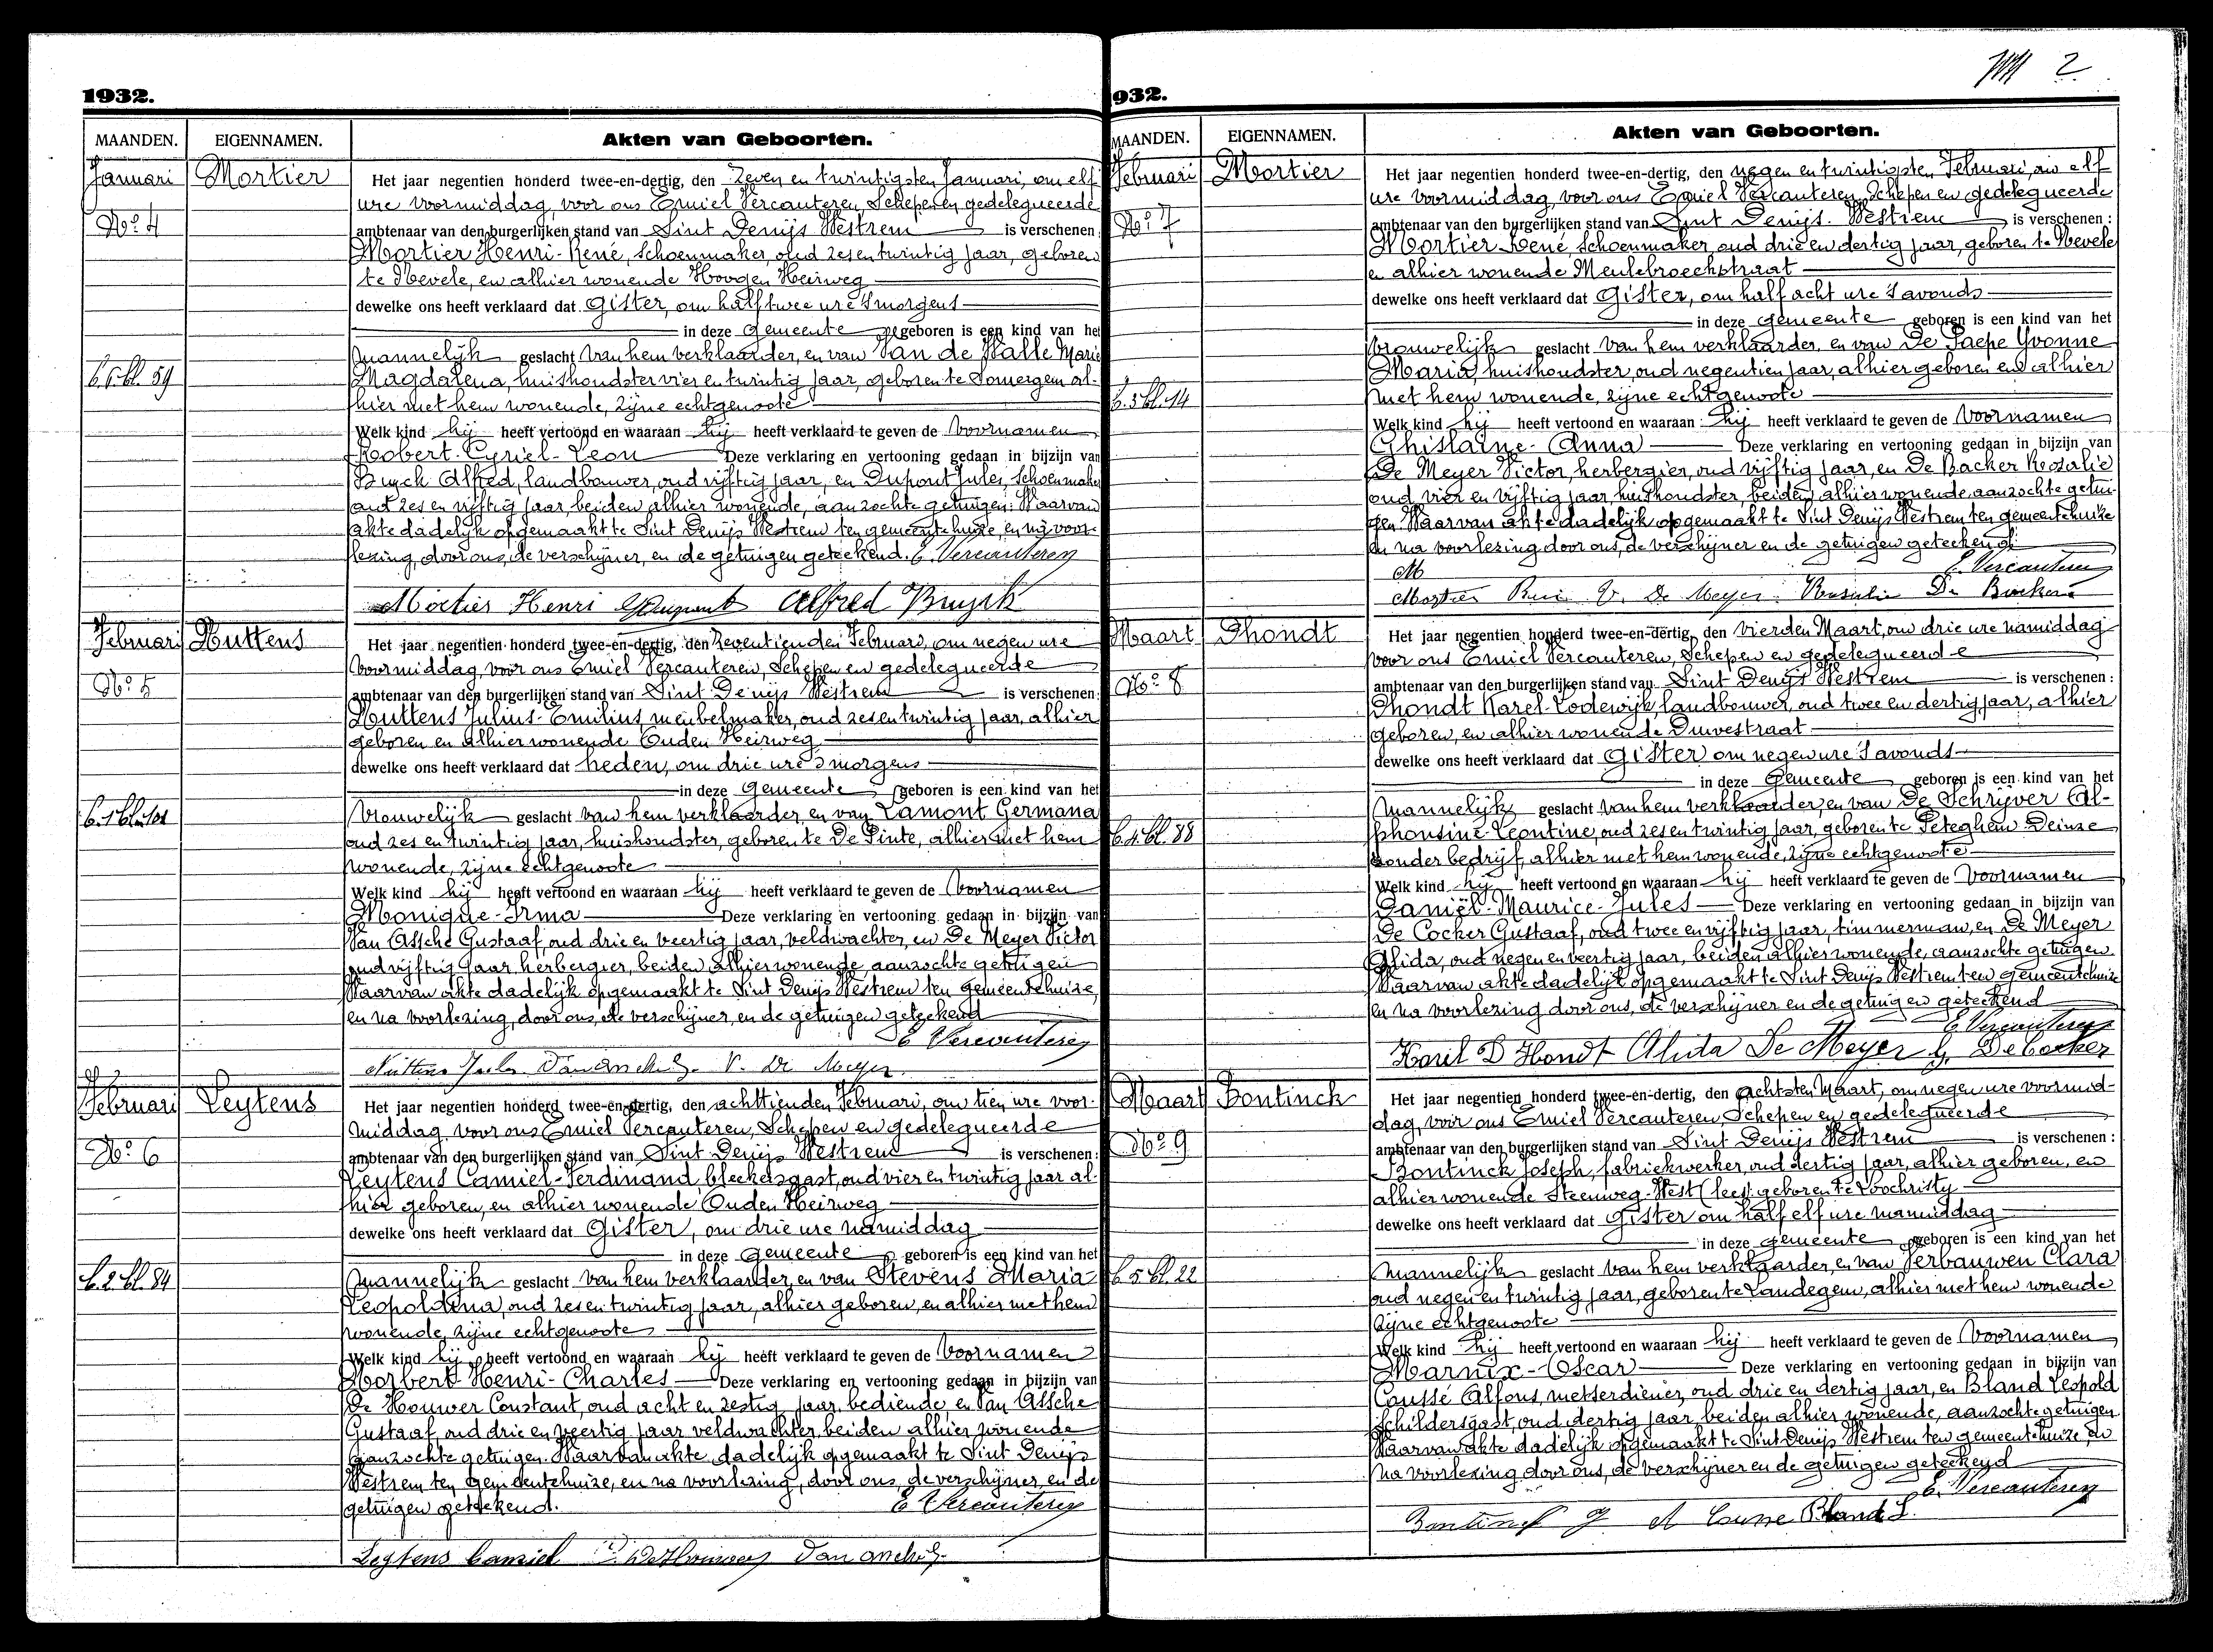 1932.
MAANDEN. EIGENNAMEN. Akten van Geboorten.
Januari Mortier Het jaar negentien honderd twee-en-dertig, den Zeven en twintigsten Januari, om elf
ure voormiddag, voor ons Emiel Vercauteren, Schepen en gedelegueerde
No 4 ambtenaar van den burgerlijken stand van Sint Denijs Westrem is verschenen:
Mortier Henri-René, Schoenmaker, oud zes en twintig jaar, geboren
te Nevele, en alhier wonende Hoogen Heirweg
dewelke ons heeft verklaard dat Gister, om half twee ure 's morgens
in deze Gemeente geboren is een kind van het
mannelijk geslacht van hem verklaarder, en van Van de Walle Marie
Magdalena, huishoudster vier en twintig jaar, geboren te Somergem al-
hier met hem wonende, zijne echtgenoote
Welk kind hij heeft vertoond en waaraan hij heeft verklaard te geven de Voornamen
Robert-Cyriel-Leon Deze verklaring en vertooning gedaan in bijzijn van
Buyck Alfred, landbouwer, oud vijftig jaar, en Dupont Jules, Schoenmaker
oud zes en vijftig jaar, beiden alhier wonende, aanzochte getuigen. Waarvan
akte dadelijk opgemaakt te Sint Denijs Westrem ten gemeentehuize, en na voor-
lezing, door ons, de verschijner, en de getuigen geteekend. E. Vercauteren
Mortier Henri Alfred Buyck
Februari Nuttens Het jaar negentien honderd twee-en-dertig, den Zeventienden Februari, om negen ure
voormiddag, voor ons Emiel Vercauteren, Schepen en gedelegueerde
No 5 ambtenaar van den burgerlijken stand van Sint Denijs Westrem is verschenen:
Nuttens Julius-Emilius, meubelmaker, oud zes en twintig jaar, alhier
geboren en alhier wonende Ouden Heirweg
dewelke ons heeft verklaard dat heden, om drie ure 's morgens
in deze Gemeente geboren is een kind van het
Vrouwelijk geslacht van hem verklaarder, en van Lamont Germana
oud zes en twintig jaar, huishoudster, geboren te De Pinte, alhier met hem
wonende, zijne echtgenoote
Welk kind hij heeft vertoond en waaraan hij heeft verklaard te geven de Voornamen
Monique-Irma Deze verklaring en vertooning gedaan in bijzijn van
Van Assche Gustaaf, oud drie en veertig jaar, veldwachter, en De Meyer Victor
oud vijftig jaar herbergier, beiden alhier wonende, aanzochte getuigen
Waarvan akte dadelijk opgemaakt te Sint Denijs Westrem ten Gemeentehuize,
en na voorlezing, door ons, de verschijner, en de getuigen geteekend
E Vercauteren
Nuttens Jules Van Assche G. V. De Meyer.
Februari Leytens Het jaar negentien honderd twee-en-dertig, den achttienden Februari, om tien ure voor-
middag voor ons Emiel Vercauteren, Schepen en gedelegueerde
No 6 ambtenaar van den burgerlijken stand van Sint Denijs Westrem is verschenen:
Leytens Camiel-Ferdinand bleekersgast, oud vier en twintig jaar al-
hier geboren, en alhier wonende Ouden Heirweg
dewelke ons heeft verklaard dat Gister, om drie ure namiddag
in deze Gemeente geboren is een kind van het
b.2.bl.84 mannelijk geslacht van hem verklaarder, en van Stevens Maria-
Leopoldina, oud zes en twintig jaar, alhier geboren, en alhier met hem
wonende, zijne echtgenoote
Welk kind hij heeft vertoond en waaraan hij heeft verklaard te geven de Voornamen
Norbert-Henri-Charles Deze verklaring en vertooning gedaan in bijzijn van
De Houwer Constant, oud acht en zestig jaar, bediende, en Van Assche
Gustaaf, oud drie en veertig jaar veldwachter, beiden alhier wonende
aanzochte getuigen. Waarvan akte dadelijk opgemaakt te Sint Denijs
Westrem ten Gemeentehuize, en na voorlezing, door ons, de verschijner, en de
getuigen geteekend. E Vercauteren
Leytens Camiel De Houwer Van Assche G.
2
932.
MAANDEN. EIGENNAMEN. Akten van Geboorten.
Februari Mortier Het jaar negentien honderd twee-en-dertig, den negen en twintigsten Februari, om elf
ure voormiddag, voor ons Emiel Vercauteren, Schepen en gedelegueerde
No 7 ambtenaar van den burgerlijken stand van Sint Denijs-Westrem is verschenen:
Mortier René, Schoenmaker, oud drie en dertig jaar, geboren te Nevele
en alhier wonende Meulebroeckstraat
dewelke ons heeft verklaard dat Gister, om half acht ure 's avonds
in deze Gemeente geboren is een kind van het
Vrouwelijk geslacht van hem verklaarder, en van De Paepe Yvonne
Maria, huishoudster, oud negentien jaar, alhier geboren en alhier
b.3.bl.14 met hem wonende, zijne echtgenoote
Welk kind hij heeft vertoond en waaraan hij heeft verklaard te geven de Voornamen
Ghislaine-Anna Deze verklaring en vertooning gedaan in bijzijn van
De Meyer Victor, herbergier, oud vijftig jaar, en De Backer Rosalie
oud vier en vijftig jaar, huishoudster, beiden alhier wonende, aanzochte getui-
gen. Waarvan akte dadelijk opgemaakt te Sint Denijs Westrem ten gemeentehuize
en na voorlezing door ons, de verschijner en de getuigen geteekend
M E. Vercauteren
Mortier René V. De Meyer Rosalie De Backer
Maart Dhondt Het jaar negentien honderd twee-en-dertig, den Vierden Maart, om drie ure namiddag
voor ons Emiel Vercauteren, Schepen en gedelegueerde
No 8 ambtenaar van den burgerlijken stand van Sint Denijs Westrem is verschenen:
Dhondt Karel-Lodewijk, landbouwer, oud twee en dertig jaar, alhier
geboren, en alhier wonende Duivestraat
dewelke ons heeft verklaard dat Gister om negen ure 's avonds
in deze Gemeente geboren is een kind van het
mannelijk geslacht van hem verklaarder, en van De Schrijver Al-
b.4.bl.88 phonsine Leontine, oud zes en twintig jaar, geboren te Peteghem-Deinze
zonder bedrijf, alhier met hem wonende, zijne echtgenoote
Welk kind hij heeft vertoond en waaraan hij heeft verklaard te geven de Voornamen
Daniël-Maurice-Jules Deze verklaring en vertooning gedaan in bijzijn van
De Cocker Gustaaf, oud twee en vijftig jaar, timmerman, en De Meyer
Alida, oud negen en veertig jaar, beiden alhier wonende, aanzochte getuigen.
Waarvan akte dadelijk opgemaakt te Sint Denijs Westrem ten gemeentehuize
en na voorlezing door ons, de verschijner en de getuigen geteekend
E. Vercauteren
Karel D Hondt Alida De Meyer G. De Cocker
Maart Bontinck Het jaar negentien honderd twee-en-dertig, den Achtsten Maart, om negen ure voormid-
dag, voor ons Emiel Vercauteren, Schepen en gedelegueerde
No 9 ambtenaar van den burgerlijken stand van Sint Denijs Westrem is verschenen:
Bontinck Joseph, fabriekwerker, oud dertig jaar, alhier geboren, en
alhier wonende Steenweg-West (lees: geboren te Loochristy
dewelke ons heeft verklaard dat Gister om half elf ure namiddag
in deze Gemeente geboren is een kind van het
b.5.bl.22 mannelijk geslacht van hem verklaarder, en van Verbauwen Clara
oud negen en twintig jaar, geboren te Landegem, alhier met hem wonende
zijne echtgenoote
Welk kind hij heeft vertoond en waaraan hij heeft verklaard te geven de Voornamen
Marnix-Oscar Deze verklaring en vertooning gedaan in bijzijn van
Coussé Alfons, metserdiener, oud drie en dertig jaar, en Bland Leopold
Schildersgast, oud dertig jaar, beiden alhier wonende, aanzochte getuigen.
Waarvan akte dadelijk opgemaakt te Sint Denijs Westrem ten gemeentehuize, en
na voorlezing door ons, de verschijner en de getuigen geteekend
E. Vercauteren
Bontinck J A Cousse Bland L.